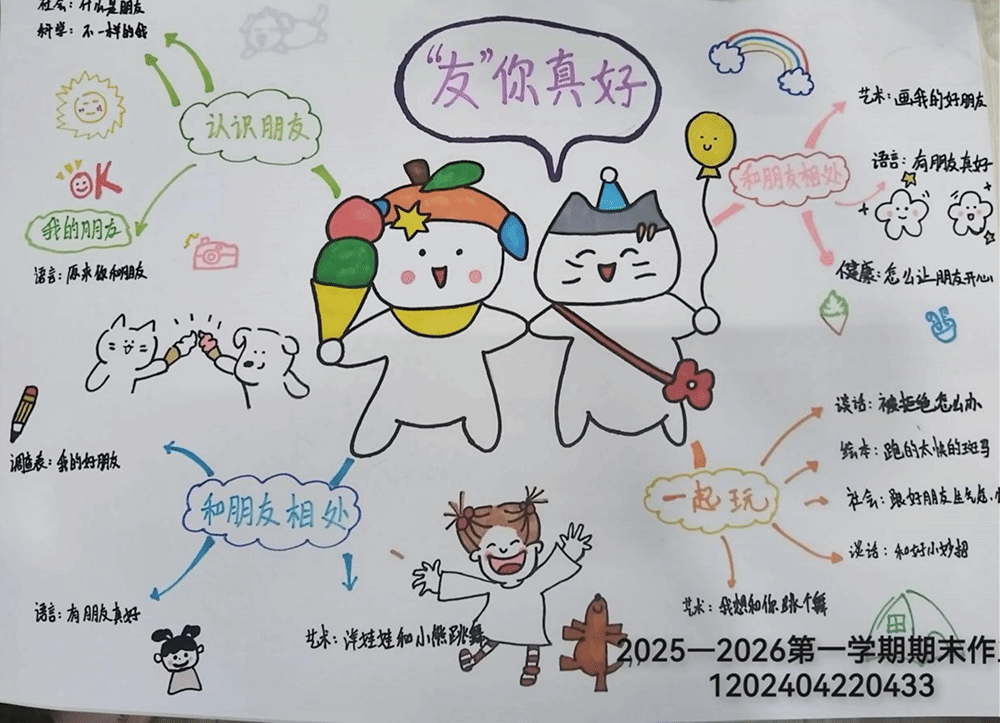 社会：什么是朋友
科学：不一样的我
“友”你真好
认识朋友
OK
我的朋友
语言：原来你和朋友
和朋友相处
艺术：画我的好朋友
语言：有朋友真好
健康：怎么让朋友开心
调查表：我的好朋友
和朋友相处
语言：有朋友真好
艺术：洋娃娃和小熊跳舞
一起玩
谈话：被拒绝怎么办
绘本：跑的太快的斑马
社会：跟好朋友生气后
谈话：和好小妙招
艺术：我想和你跳个舞
2025—2026第一学期期末作
1202404220433